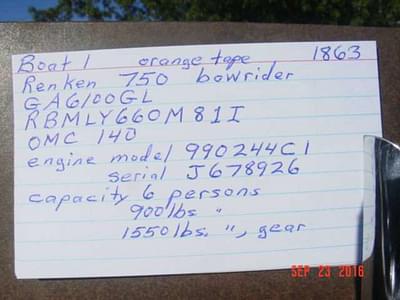 Boat 1 orange tape 1863
Renken 750 bowrider
GA6100GL
RBMLY660M81I
OMC 140
engine model 990244C1
serial J678926
capacity 6 persons
900 lbs "
1550 lbs. ", gear
SEP 23 2016